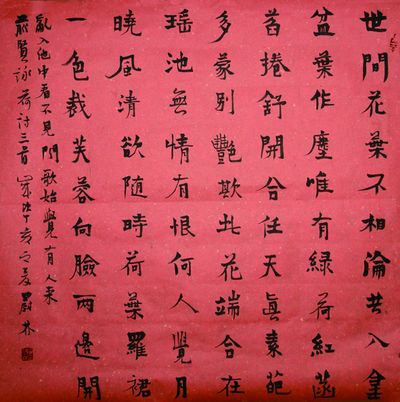 世間花葉不相淪花入金
盆葉作塵唯有綠荷紅菡
萏捲舒開合任天真素葩
多蒙別豔欺此花端合在
瑤池無情有恨何人覺月
曉風清欲隨時荷葉羅裙
一色裁芙蓉向臉兩邊開
亂入池中看不見聞歌始覺有人來
前賢詠荷詩三首歲次丁亥之夏